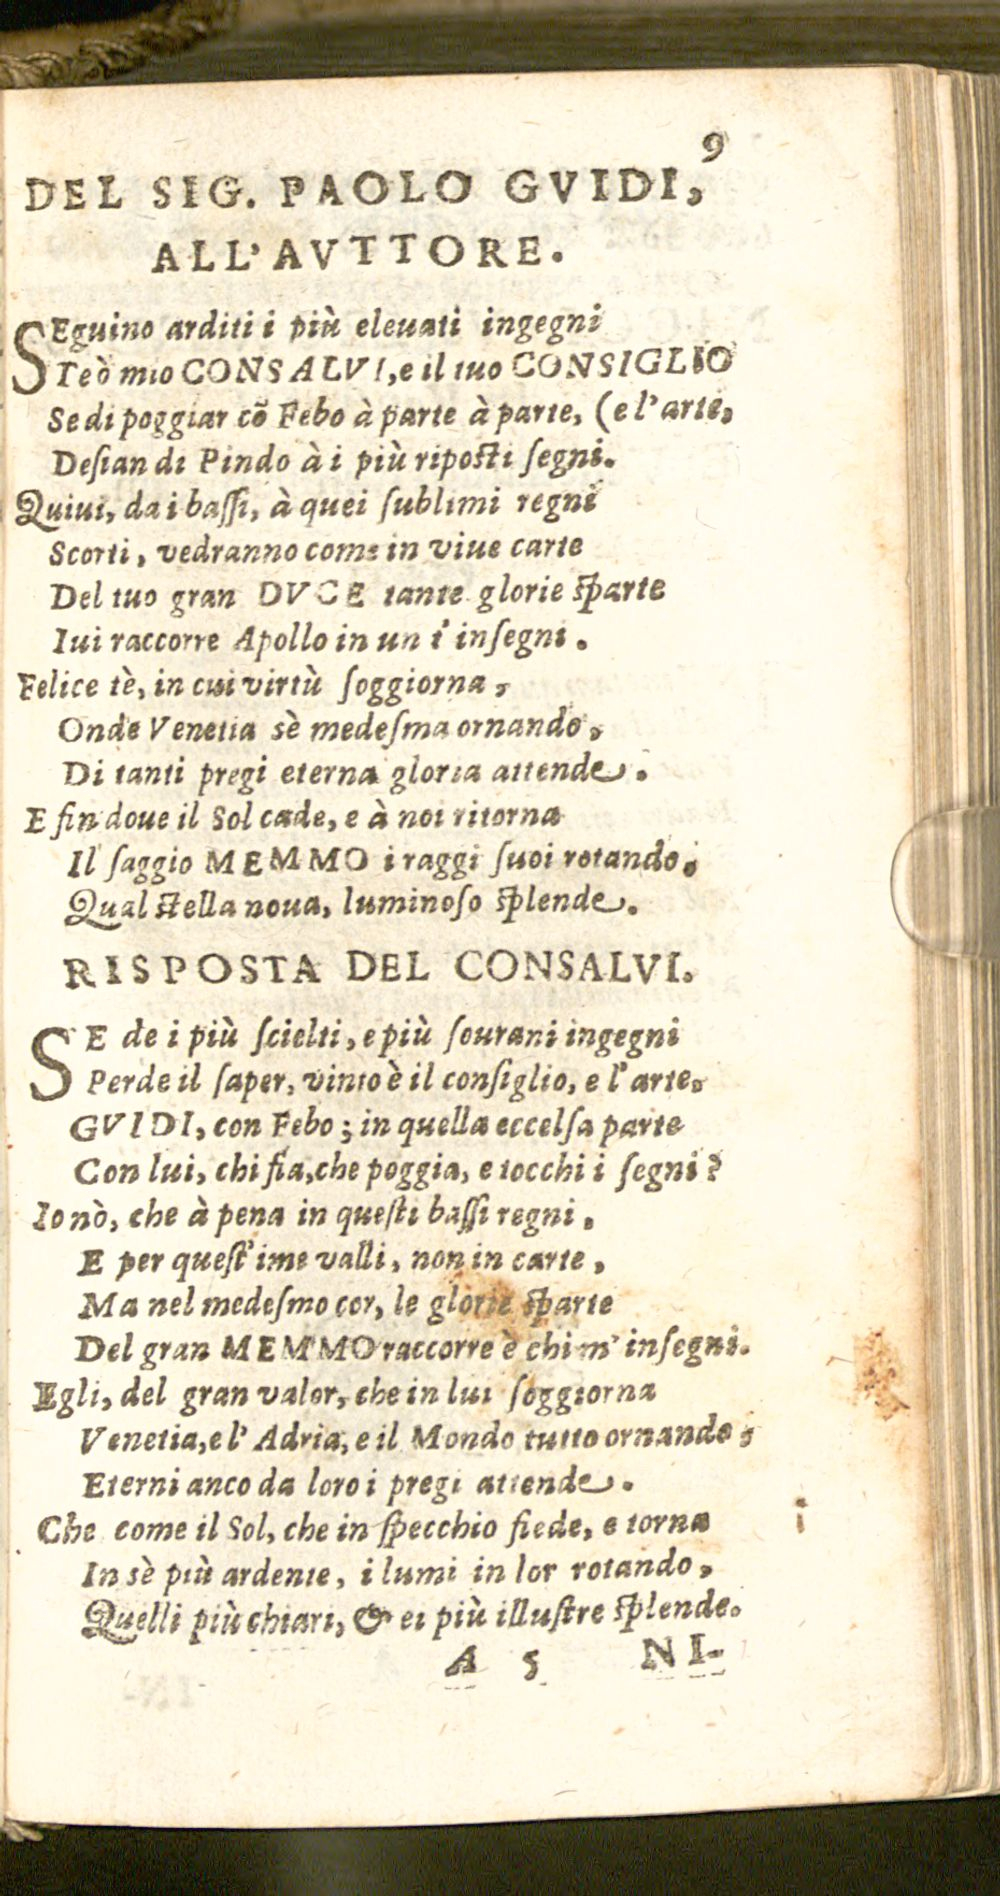 9
DEL SIG. PAOLO GVIDI,
ALL'AVTTORE.
SEguino arditi i più eleuati ingegni
Te ò mio CONSALVI, e il tuo CONSIGLIO
Se di poggiar cõ Febo à parte à parte, (e l'arte,
Deſian di Pindo à i più ripoſti ſegni.
Quiui, da i baſſi, à quei ſublimi regni
Scorti, vedranno come in viue carte
Del tuo gran DVCE tante glorie ſparte
Iui raccorre Apollo in un t'inſegni.
Felice tè, in cui virtù ſoggiorna,
Onde Venetia sè medeſma ornando,
Di tanti pregi eterna gloria attende.
E fin doue il Sol cade, e à noi ritorna
Il ſaggio MEMMO i raggi ſuoi rotando,
Qual ſtella noua, luminoſo ſplende.
RISPOSTA DEL CONSALVI.
SE de i più ſcielti, e più ſourani ingegni
Perde il ſaper, vinto è il conſiglio, e l'arte.
GVIDI, con Febo; in quella eccelſa parte
Con lui, chi fia, che poggia, e tocchi i ſegni?
Io nò, che à pena in queſti baſſi regni,
E per queſt'ime valli, non in carte,
Ma nel medeſmo cor, le glorie ſparte
Del gran MEMMO raccorre è chi m'inſegni.
Egli, del gran valor, che in lui ſoggiorna
Venetia, e l'Adria, e il Mondo tutto ornando,
Eterni anco da loro i pregi attende.
Che come il Sol, che in ſpecchio fiede, e torna
In sè più ardente, i lumi in lor rotando,
Quelli più chiari, & ei più illuſtre ſplende.
A 5 NI-